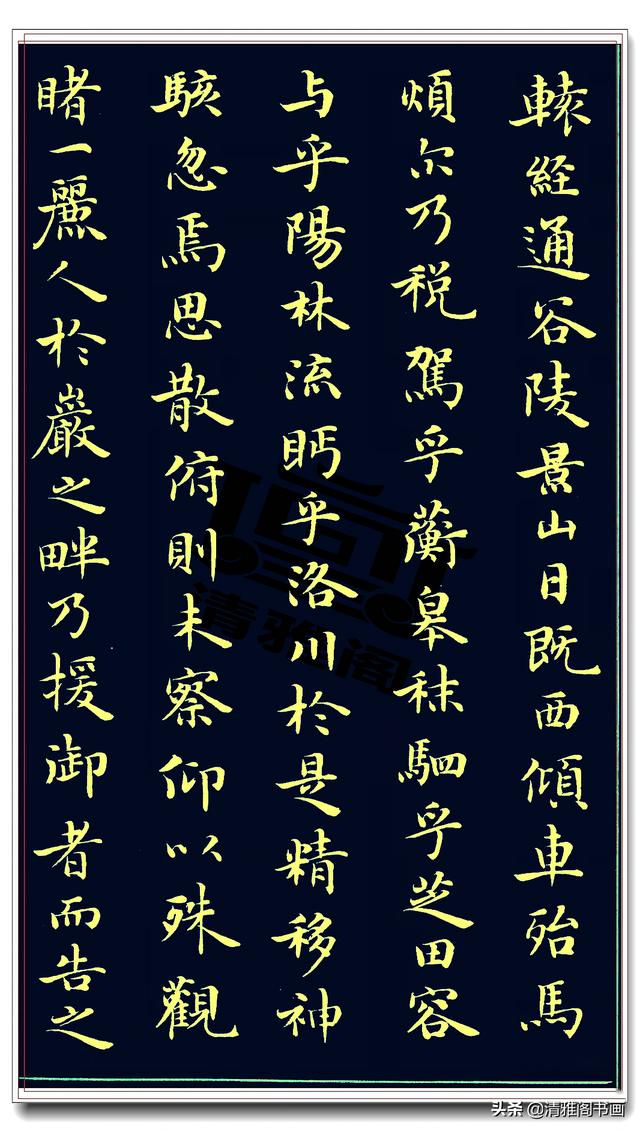 轅經通谷陵景山日既西傾車殆馬
煩尔乃税駕乎蘅皋秣駟乎芝田容
与乎陽林流眄乎洛川於是精移神
駭忽焉思散俯則未察仰以殊觀
睹一麗人於巖之畔乃援御者而告之
清雅阁
头条 @清雅阁书画